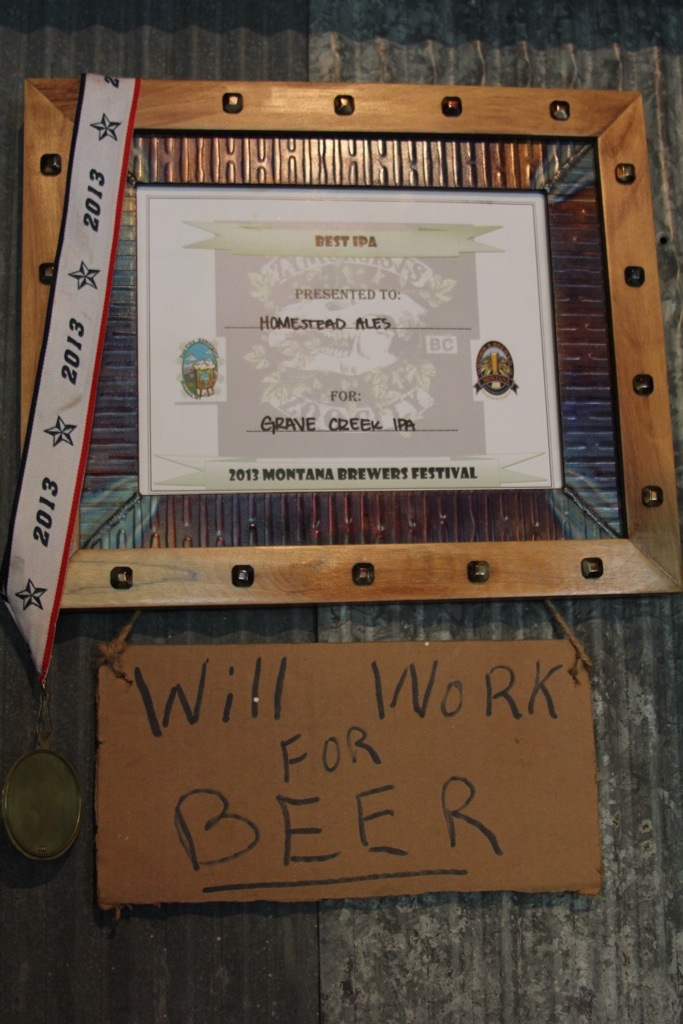 2013
2013
2013
2013
BEST IPA
PRESENTED TO:
HOMESTEAD ALES
BC
FOR:
GRAVE CREEK IPA
2013 MONTANA BREWERS FESTIVAL
Will WORK
FOR
BEER